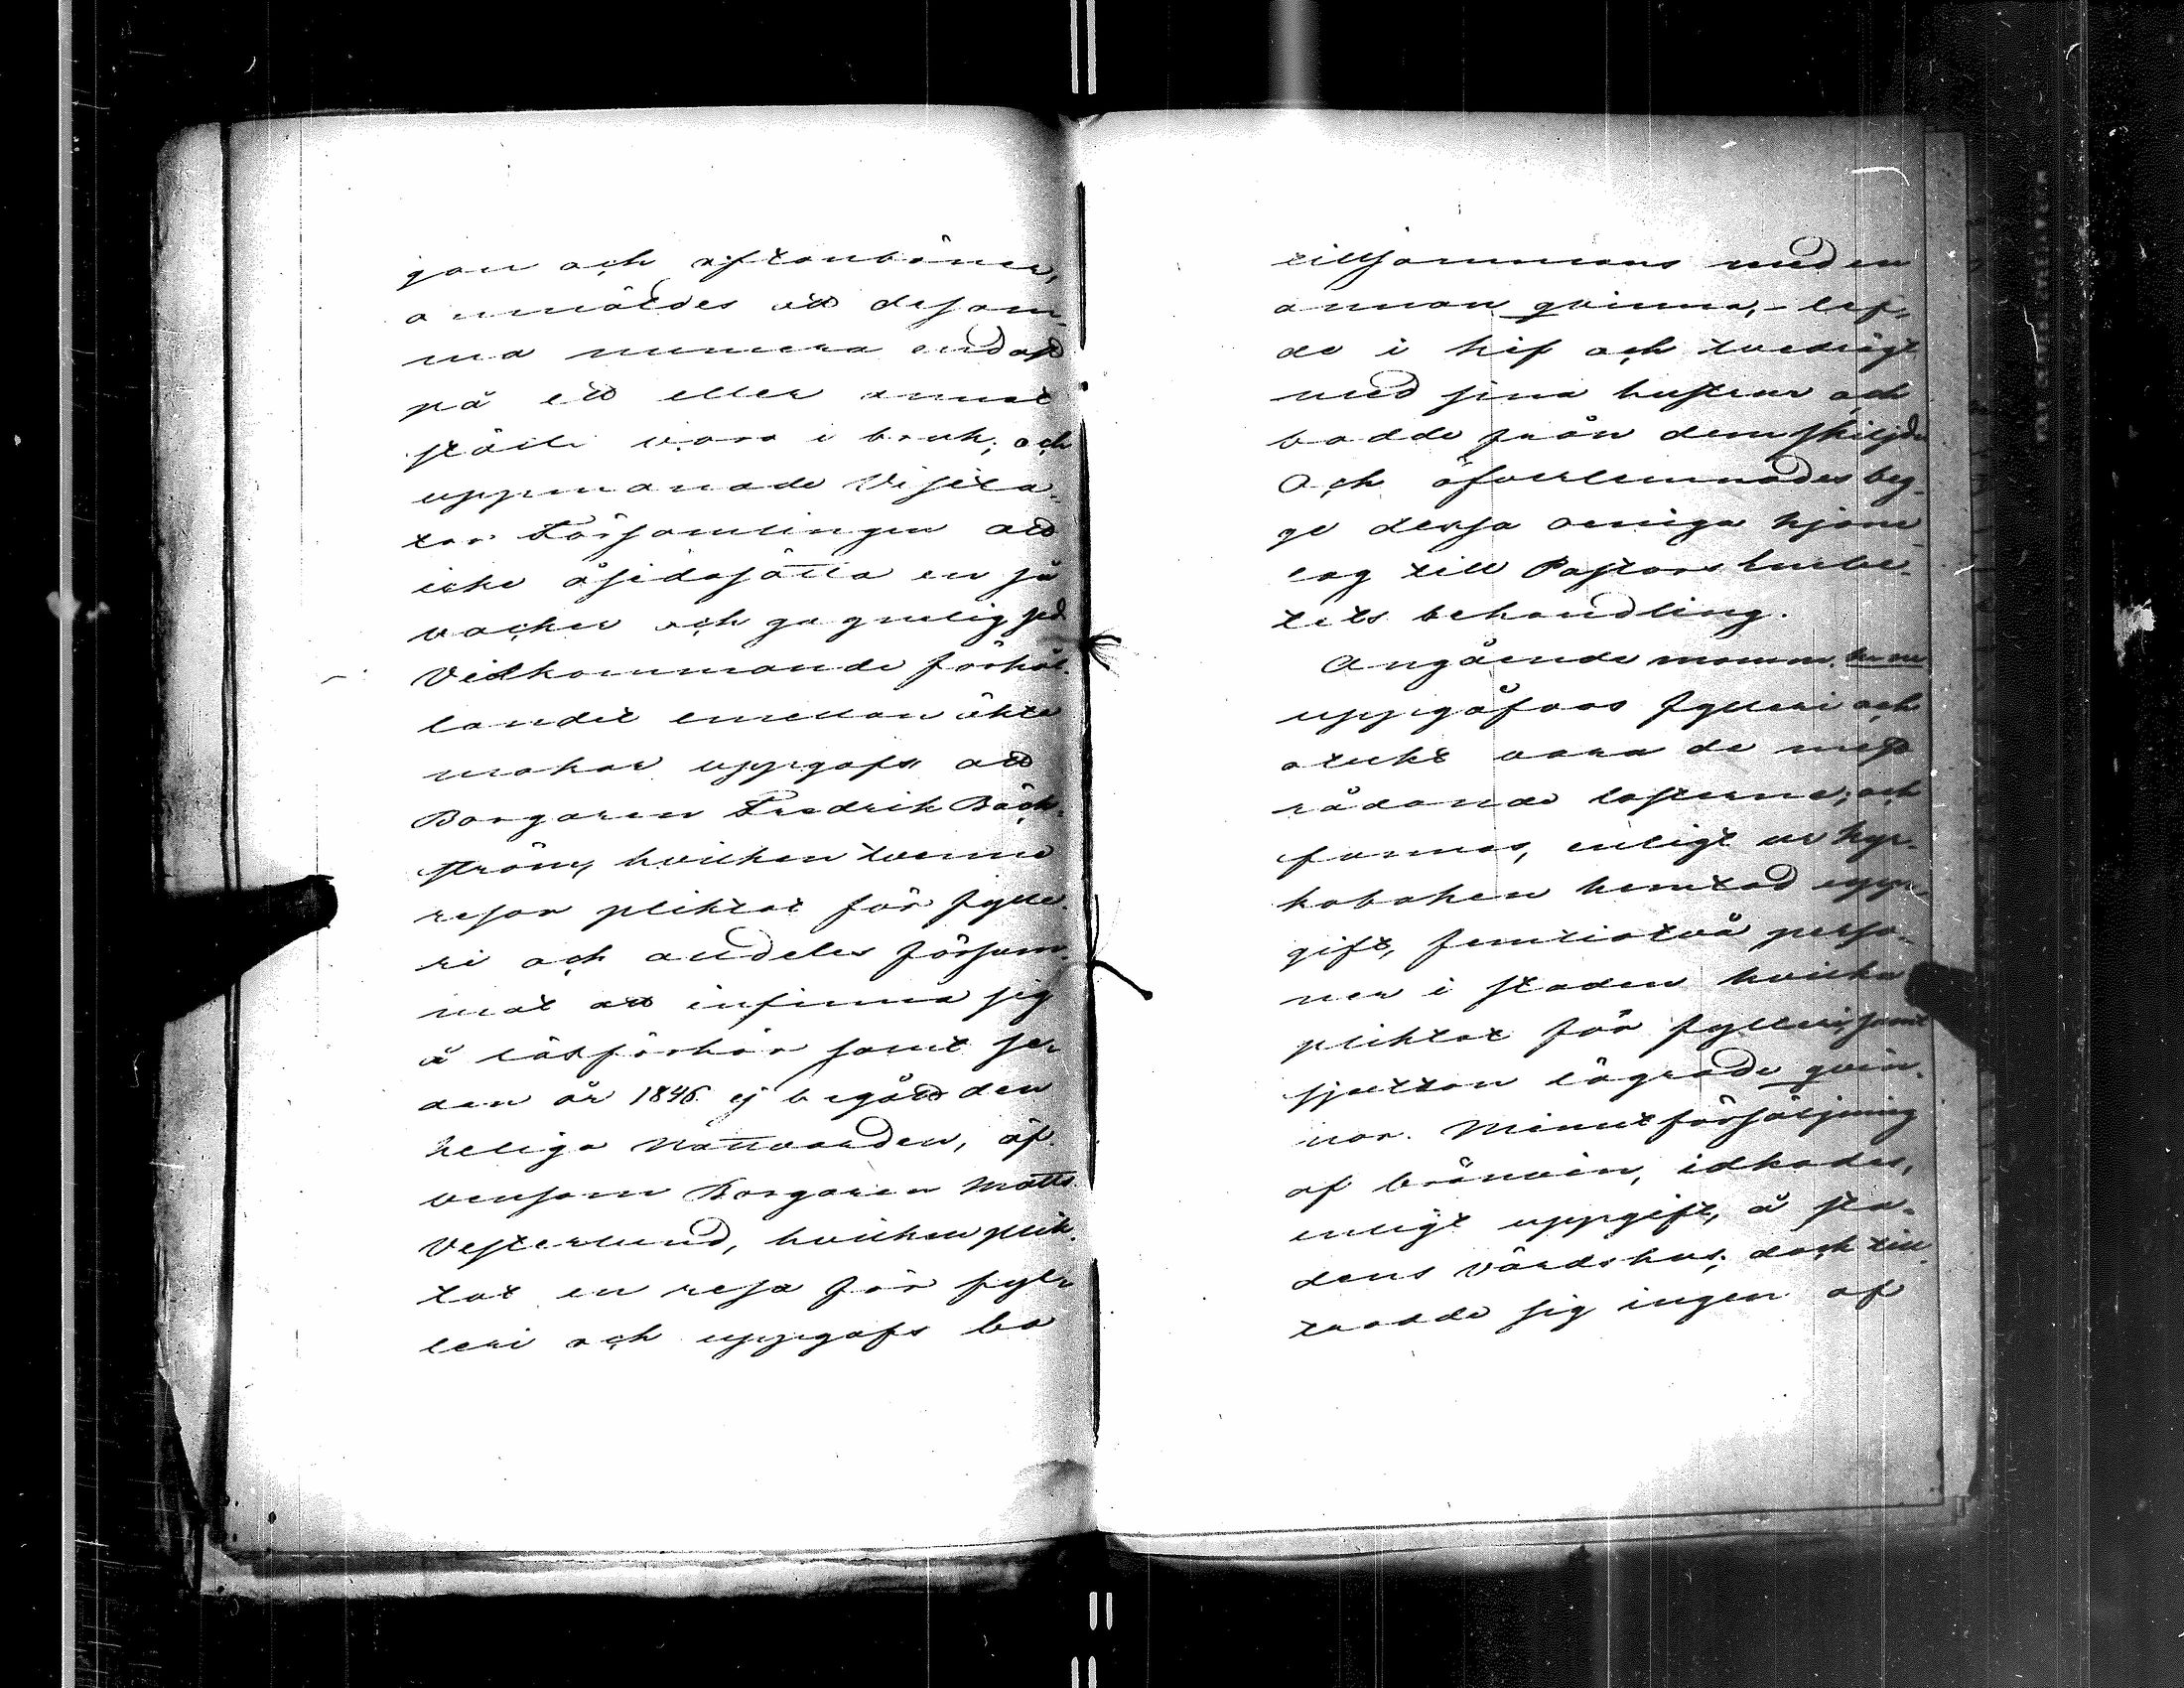 gon och aftonböner,
anmäldes att desam¬
ma numera endast
på ett eller annat
ställe vara i bruk; och
uppmanade Visita¬
tor Församlingen att
icke åsidosätta en så
vacker och gagnelig sed.
Vidkommande förhål¬
landet emellan äkta
makar uppgafs att
Borgaren Fredrik Bäck¬
ström, hvilken tvenne
resor pliktat för fylle¬
ri och andeles försum¬
mat att infinna sig
å läsförhör samt se¬
dan år 1846 ej begått den
heliga Nattvarden, äf¬
vensom Borgaren Matts
Vesterlund, hvilken plik¬
tat en resa för fyl¬
leri och uppgafs bo
tillsammans med en
annan qvinna, - lef¬
de i kif och tvedrägt
med sina hustrur och
bodde från dem skiljde
Och öfverlemnades beg¬
ge dessa oeniga hjone¬
lag till Pastors Embe¬
tets behandling.
Angående mom. m.
uppgåfvos fylleri och
otukt vara de mest
rådande lasterna; och
funnos, enligt ur kyr¬
koboken hemtad upp¬
gift, femtiotvå perso¬
ner i staden hvilka
pliktat för fylleri, samt
sjutton lägrade qvin¬
nor. Minutförsäljning
af bränvin, idkades,
enligt uppgift, å sta¬
dens värdshus; dock till
trodde sig ingen af